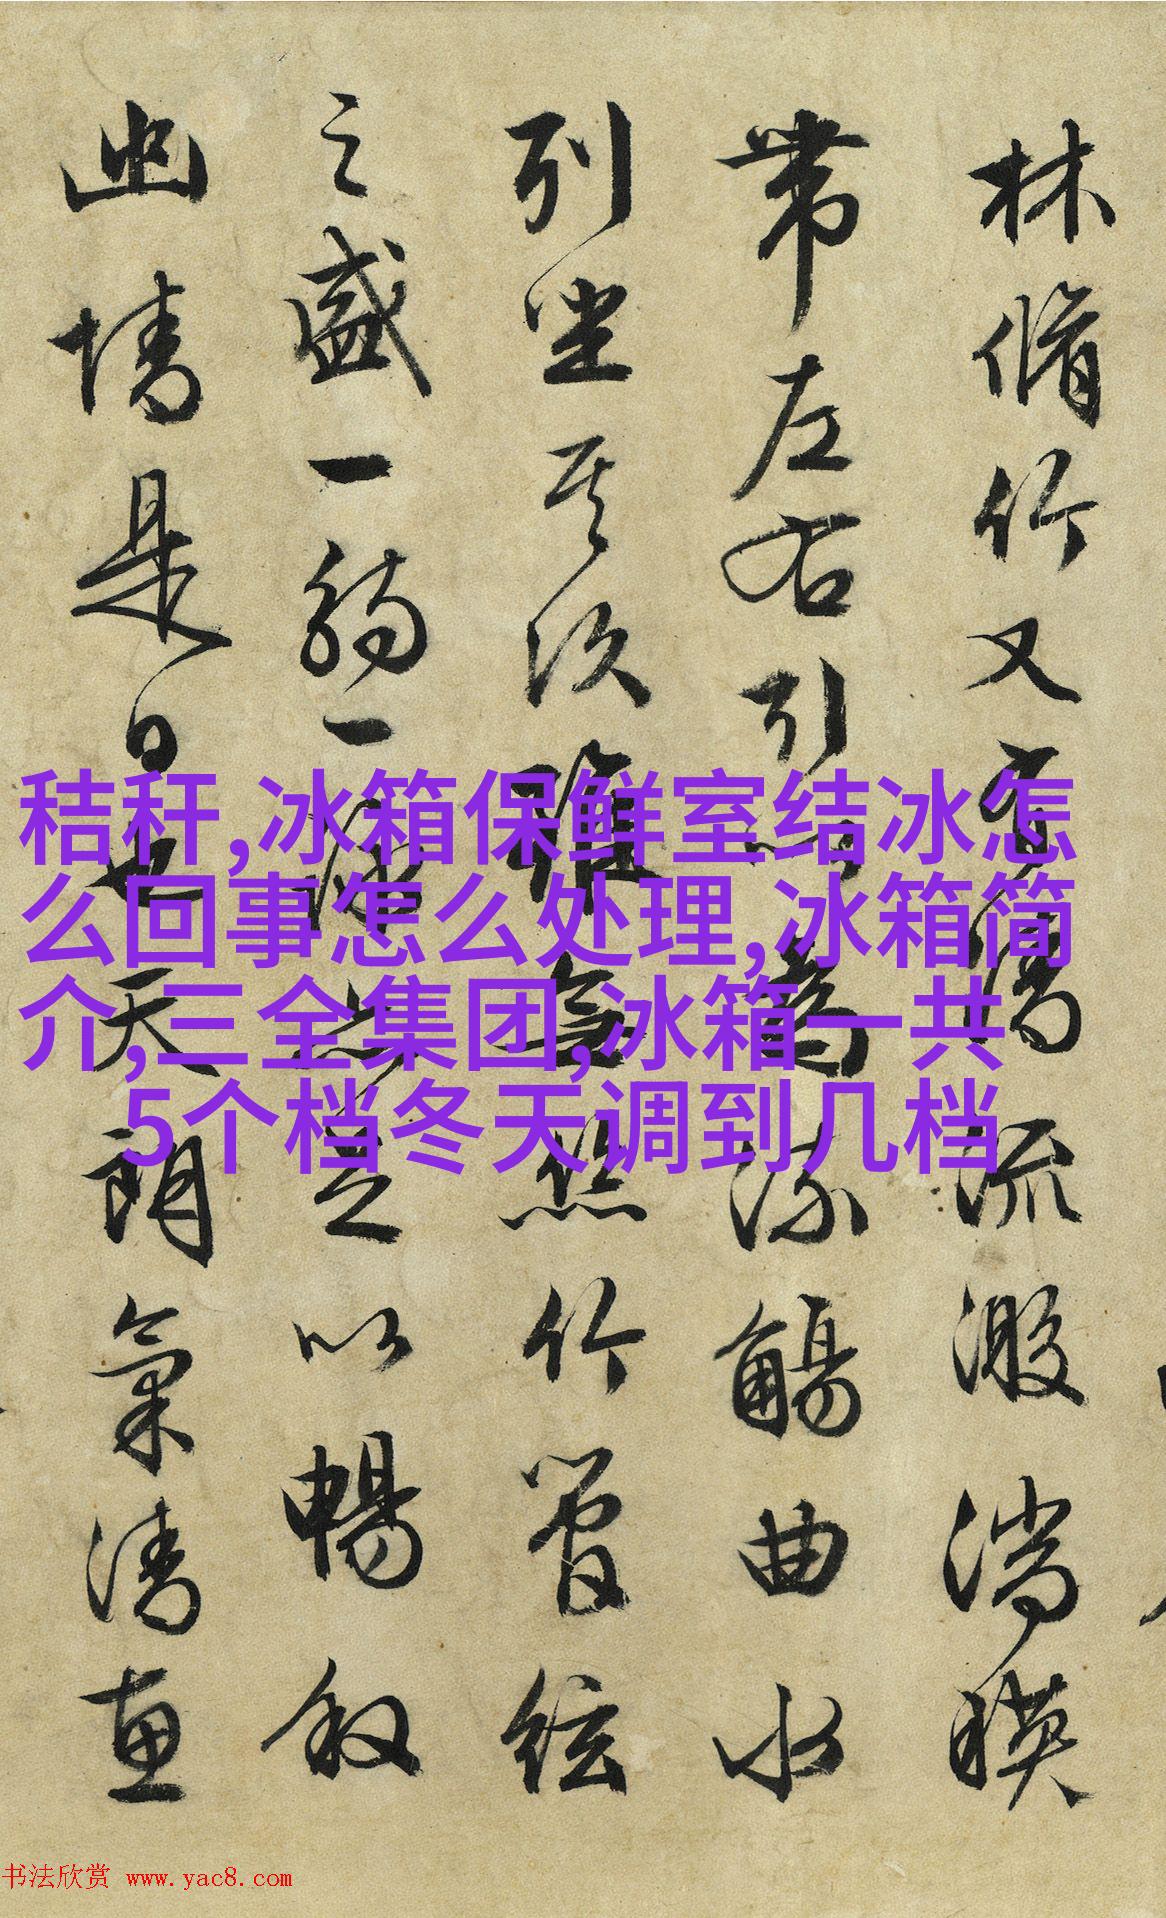 林脩竹又有清流激湍暎
帶左右引以為流觴曲水
列坐其次雖無絲竹管絃
之盛一觴一詠亦足以暢叙
幽情是日也天朗氣清惠
秸秆,冰箱保鲜室结冰怎
么回事怎么处理,冰箱简
介,三全集团,冰箱一共
5个档冬天调到几档
书法欣赏 www.yac8.com